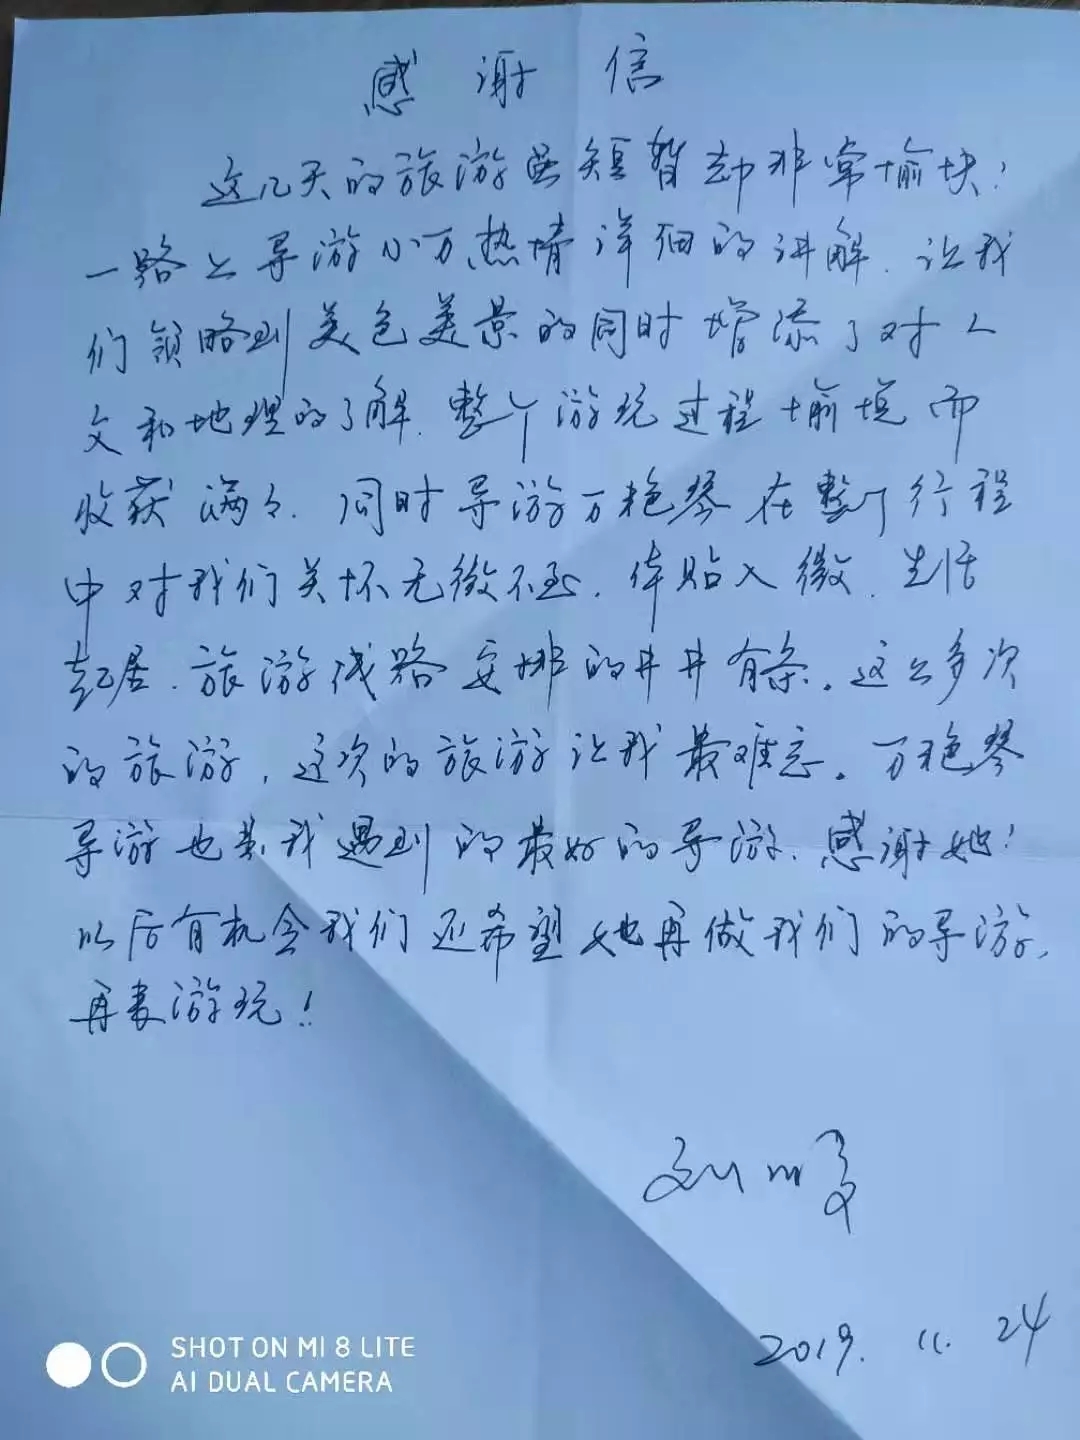 感谢信
这几天的旅游虽短暂却非常愉快!
一路上导游小万热情详细的讲解.让我
们领略到美色美景的同时增添了对人
文和地理的了解.整个游玩过程愉悦而
收获满々.同时导游万艳琴在整个行程
中对我们关怀无微不至.体贴入微.生活
起居.旅游线路安排的井井有条。这么多次
的旅游,这次的旅游让我最难忘。万艳琴
导游也是我遇到的最好的导游.感谢她!
以后有机会我们还希望她再做我们的导游,
再来游玩!
2019.11.24
SHOT ON MI 8 LITE
AI DUAL CAMERA